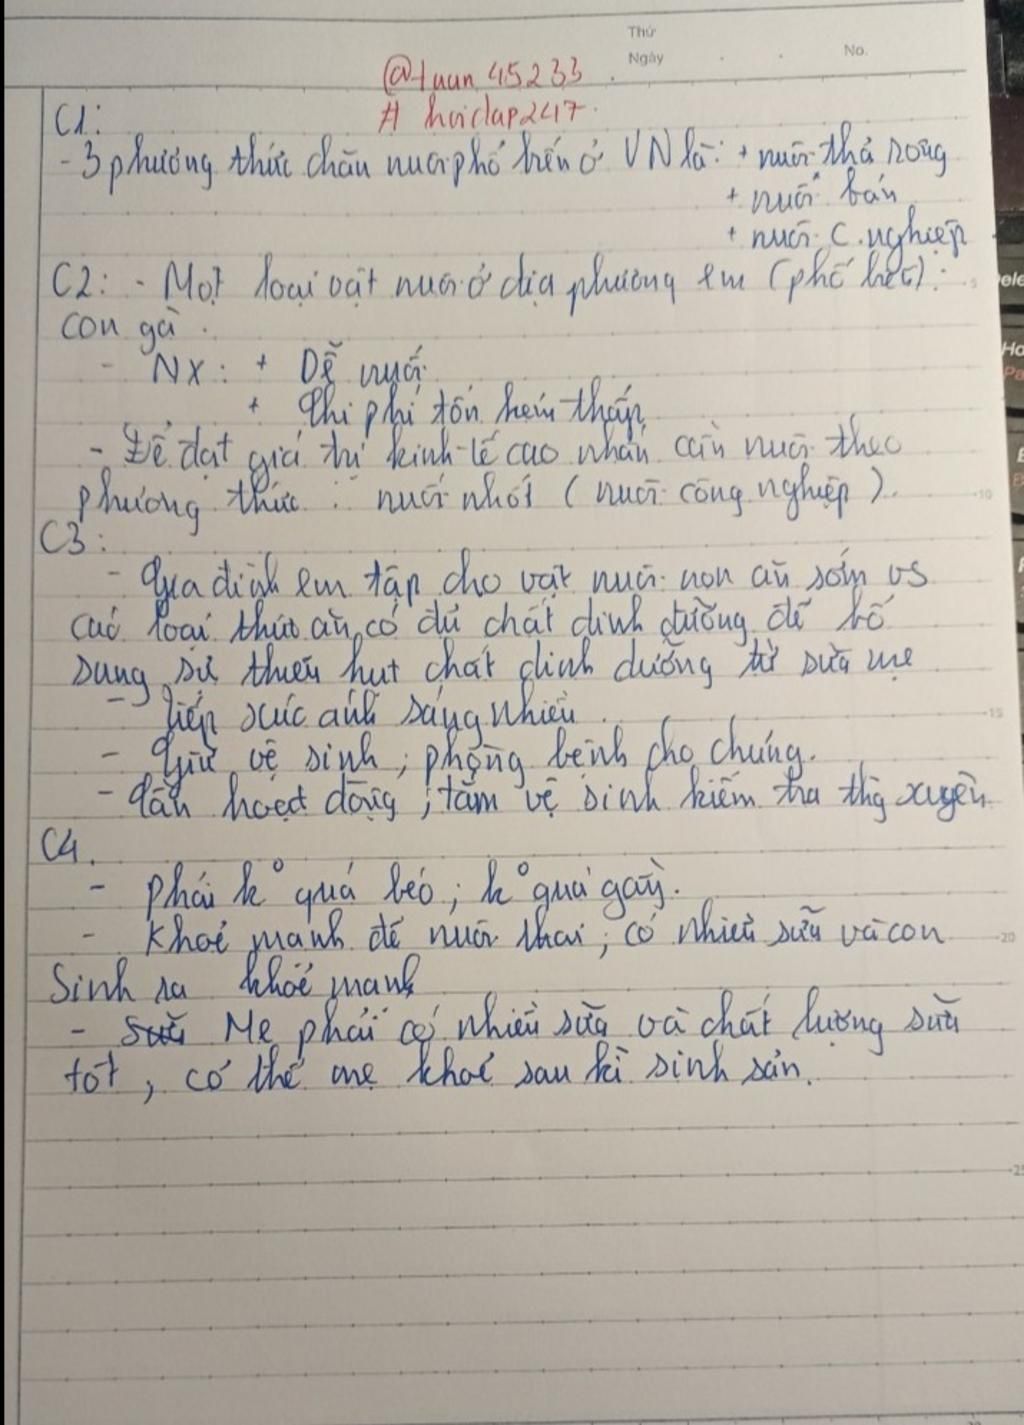 Thứ
Ngày
No.
@tuan 45233
# hoidap247
C1:
- 3 phương thức chăn nuôi phổ biến ở VN là: + nuôi thả rông
+ nuôi bán
+ nuôi C. nghiệp
C2: - Một loại vật nuôi ở địa phương em (phổ biến):
con gà.
- NX: + Dễ nuôi
+ Chi phí tốn kém thấp
- Để đạt giá trị kinh tế cao nhấn cần nuôi theo
phương thức: nuôi nhốt (nuôi công nghiệp).
C3:
- Gia đình em tập cho vật nuôi non ăn sớm vs
các loại thức ăn có đủ chất dinh dưỡng để bổ
sung sự thiếu hụt chất dinh dưỡng từ sữa mẹ
- Tiếp xúc ánh sáng nhiều.
- Giữ vệ sinh; phòng bệnh cho chúng.
- Cần hoạt động; tắm vệ sinh kiểm tra thg xuyên
C4.
- Phải k° quá béo; k° quá gầy.
- Khoẻ mạnh để nuôi thai; có nhiều sữa và con
Sinh ra khoẻ mạnh
- Mẹ phải có nhiều sữa và chất lượng sữa
tốt, có thể mẹ khoẻ sau kì sinh sản.
5
10
15
20
25